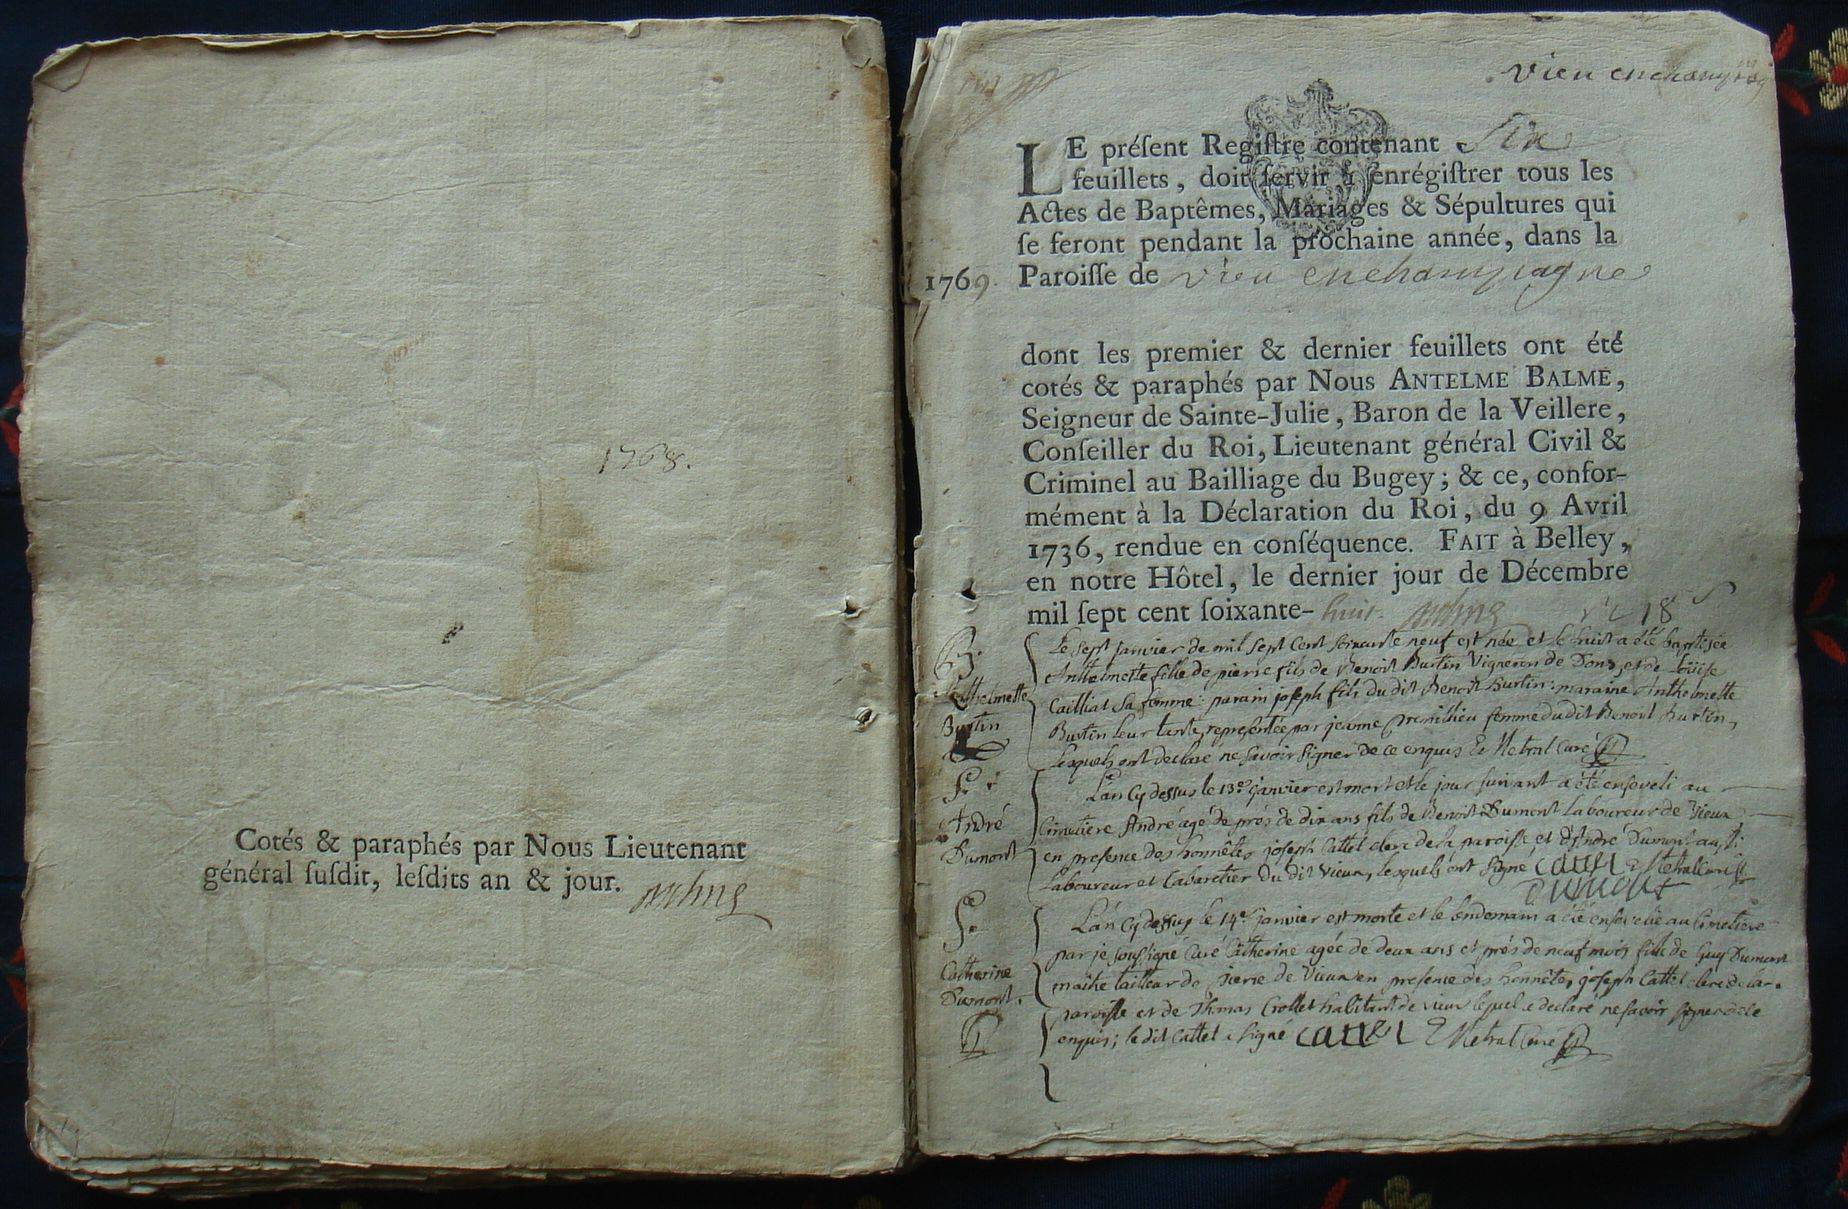 1768.
Cotés & paraphés par Nous Lieutenant
général ſuſdit, leſdits an & jour.
Vieu enchampagne
LE préſent Regiſtre contenant Six
feuillets, doit ſervir à enrégiſtrer tous les
Actes de Baptêmes, Mariages & Sépultures qui
ſe feront pendant la prochaine année, dans la
1769. Paroiſſe de Vieu enchampagne
dont les premier & dernier feuillets ont été
cotés & paraphés par Nous ANTELME BALME,
Seigneur de Sainte-Julie, Baron de la Veillere,
Conſeiller du Roi, Lieutenant général Civil &
Criminel au Bailliage du Bugey; & ce, confor-
mément à la Déclaration du Roi, du 9 Avril
1736, rendue en conſéquence. FAIT à Belley,
en notre Hôtel, le dernier jour de Décembre
mil ſept cent ſoixante- huit.
B.
Anthelmette
Burtin
Le sept janvier de mil sept cent soixante neuf est née et le huit a été baptisée
Anthelmette fille de pierre fils de Benoit Burtin Vigneron de Don, et de
Cailliat sa femme: parain joseph fils du dit Benoit Burtin: maraine Anthelmette
Burtin leur tante, representée par jeanne femme du dit Benoit Burtin,
lesquels ont declaré ne savoir signer de ce enquis Metral Curé
S.
André
Dumont
L'an cy dessus le 13e janvier est mort et le jour suivant a été enseveli au
Cimetiere André agé de prés de dix ans fils de Benoit Dumont laboureur de Vieux
en presence des honnêtes joseph Cattet clerc de la paroisse et d'André Dumont aussi
Laboureur et Cabaretier du dit Vieux, lesquels ont signé Cattet Metral curé
Dumont
S.
Catherine
Dumont.
L'an cy dessus le 14e janvier est morte et le lendemain a été ensevelie au Cimetiere
par je soussigné Curé Catherine agée de deux ans et prés de neuf mois fille de Guy Dumont
maitre tailleur de pierre de Vieux en presence des honnêtes joseph Cattet clerc de la
paroisse et de Thomas Crollet habitant de vieux lequel a declaré ne savoir signer de ce
enquis; le dit Cattet a signé Cattet Metral Curé